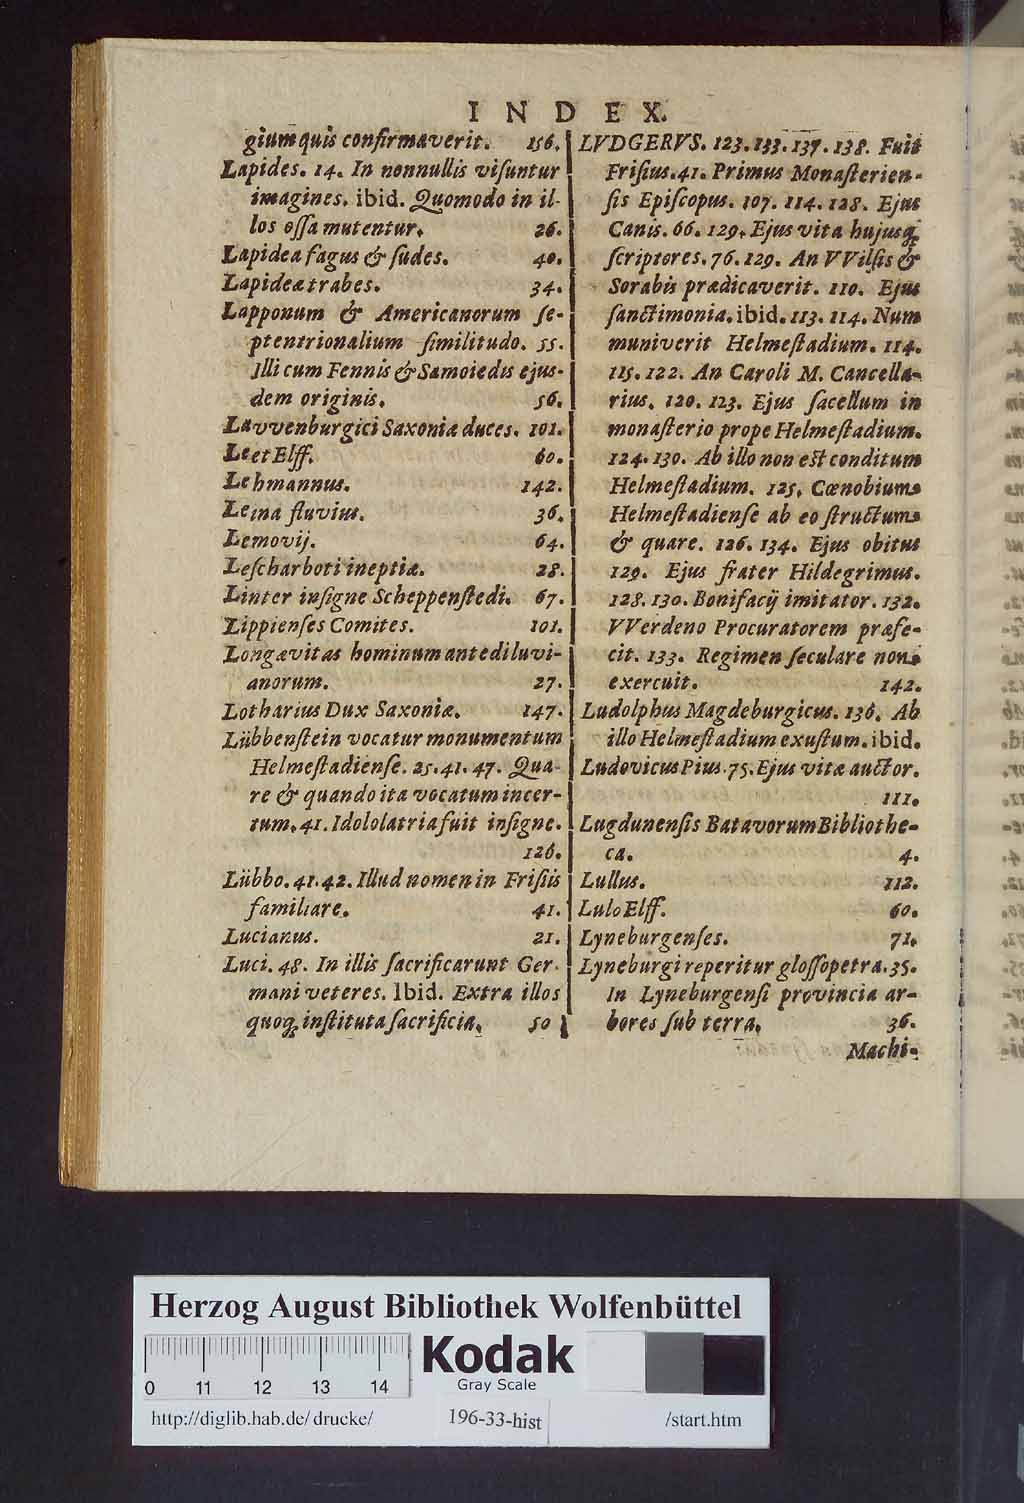 INDEX.
gium quis confirmaverit. 156.
Lapides. 14. In nonnullis viſuntur
imagines. ibid. Quomodo in il-
los oſſa mutentur. 26.
Lapidea fagus & ſudes. 40.
Lapideæ trabes. 34.
Lapponum & Americanorum ſe-
ptentrionalium ſimilitudo. 55.
Illi cum Fennis & Samoiedis ejus-
dem originis. 56.
Lavvenburgici Saxoniæ duces. 101.
Leet Elff. 60.
Lehmannus. 142.
Leina fluvius. 36.
Lemovij. 64.
Leſcharboti ineptiæ. 28.
Linter inſigne Scheppenſtedi. 67.
Lippienſes Comites. 101.
Longævitas hominum antediluvi-
anorum. 27.
Lotharius Dux Saxoniæ. 147.
Lübbenſtein vocatur monumentum
Helmeſtadienſe. 25. 41. 47. Qua-
re & quando ita vocatum incer-
tum. 41. Idololatria fuit inſigne.
126.
Lübbo. 41. 42. Illud nomen in Friſiis
familiare. 41.
Lucianus. 21.
Luci. 48. In illis ſacrificarunt Ger-
mani veteres. Ibid. Extra illos
quoq; inſtituta ſacrificia. 50
LVDGERVS. 123. 133. 137. 138. Fuit
Friſius. 41. Primus Monaſterien-
ſis Epiſcopus. 107. 114. 128. Ejus
Canis. 66. 129. Ejus vita hujusq;
ſcriptores. 76. 129. An VVilſis &
Sorabis prædicaverit. 110. Ejus
ſanctimonia. ibid. 113. 114. Num
muniverit Helmeſtadium. 114.
115. 122. An Caroli M. Cancella-
rius. 120. 123. Ejus ſacellum in
monaſterio prope Helmeſtadium.
124. 130. Ab illo non eſt conditum
Helmeſtadium. 125. Cœnobium
Helmeſtadienſe ab eo ſtructum
& quare. 126. 134. Ejus obitus
129. Ejus frater Hildegrimus.
128. 130. Bonifacij imitator. 132.
VVerdeno Procuratorem præfe-
cit. 133. Regimen ſeculare non
exercuit. 142.
Ludolphus Magdeburgicus. 136. Ab
illo Helmeſtadium exuſtum. ibid.
Ludovicus Pius. 75. Ejus vitæ auctor.
111.
Lugdunenſis Batavorum Bibliothe-
ca. 4.
Lullus. 112.
Lulo Elff. 60.
Lyneburgenſes. 71.
Lyneburgi reperitur gloſſopetra. 35.
In Lyneburgenſi provincia ar-
bores ſub terra. 36.
Machi-
Herzog August Bibliothek Wolfenbüttel
Kodak
Gray Scale
0 11 12 13 14
http://diglib.hab.de/drucke/ 196-33-hist /start.htm